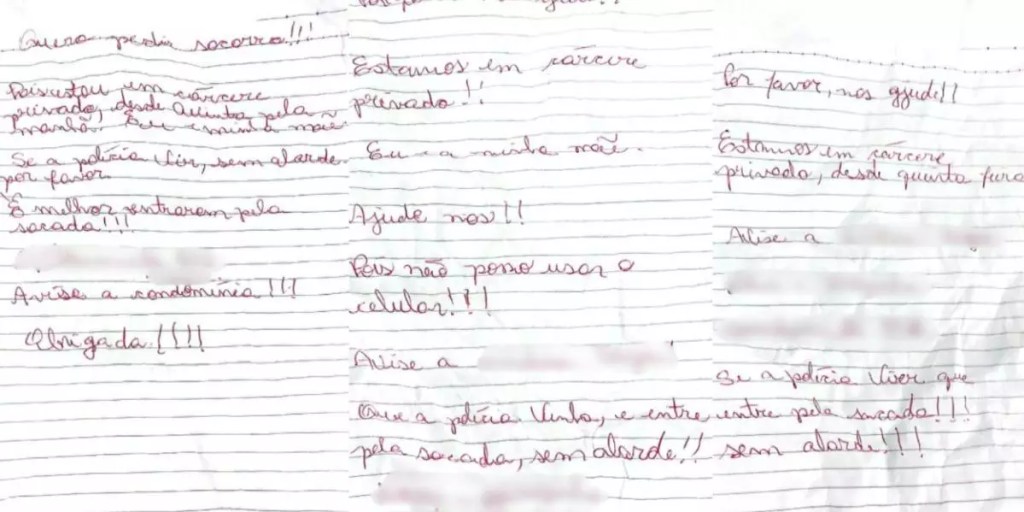 Quero pedir socorro!!!
Pois estou em cárcere
privado, desde Quinta pela
manhã. Eu e minha mãe.
Se a polícia vir, sem alarde
por favor
É melhor entrarem pela
sacada!!!
Avise a condomínia!!!
Obrigada!!!!
Estamos em cárcere
privado!!
Eu e a minha mãe.
Ajude nos!!
Pois não posso usar o
celular!!!
Avise a
Que a polícia venha, e entre
pela sacada, sem alarde!!
Por favor, nos ajude!!
Estamos em cárcere
privado, desde quinta
Avise a
Se a polícia vier que
entre pela sacada!!!
sem alarde!!!